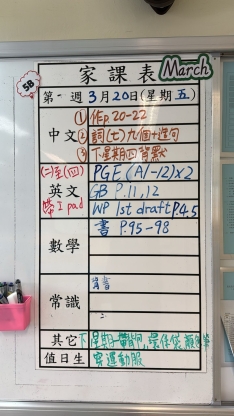 家課表 March
5B
第一週 3月20日(星期五)
中文 ①作p.20-22
②詞(七)九個+造句
③下星期四背默
(二)至(四) PGE (A1-12)x2
英文 GB P.11,12
帶Ipad WP 1st draft P.4,5
數學 書 P.95-98
常識
其它 下星期一
值日生 穿運動服